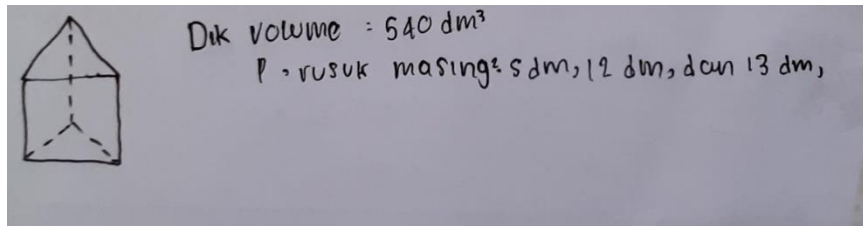 Dik volume : 540 dm³
P. rusuk masing² 5 dm, 12 dm, dan 13 dm,